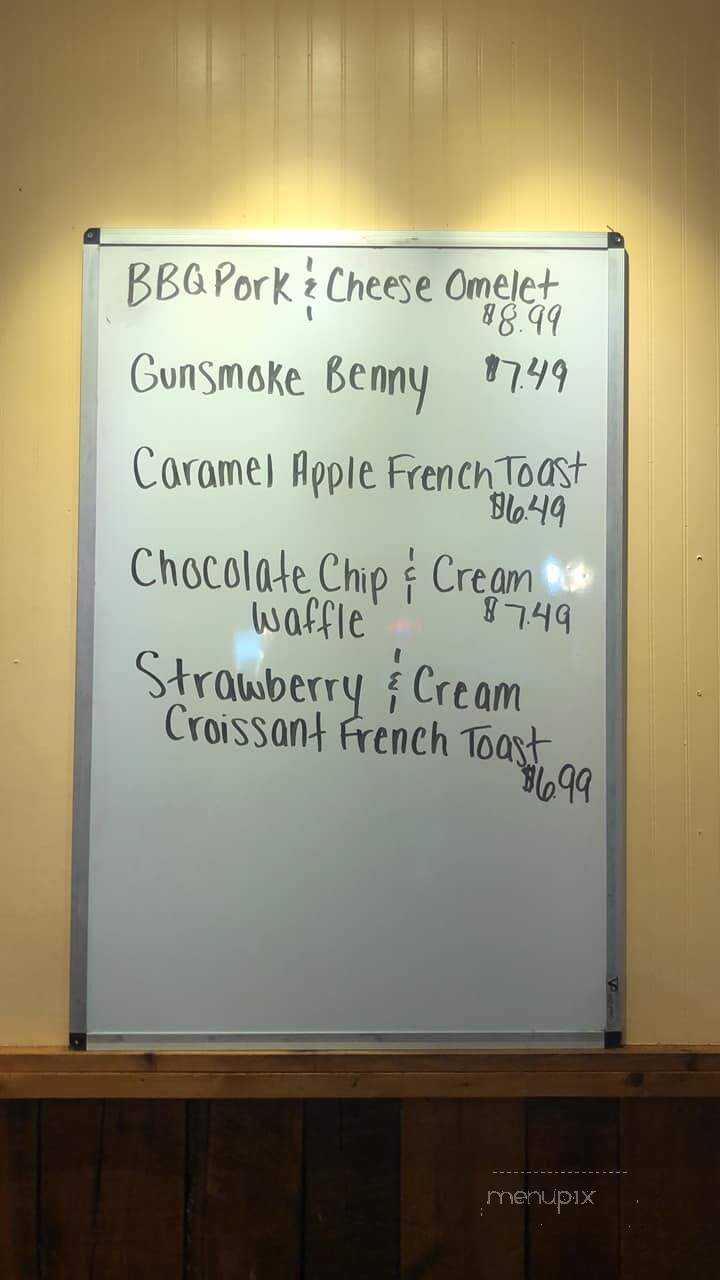 BBQ Pork & Cheese Omelet
$8.99
Gunsmoke Benny $7.49
Caramel Apple French Toast
$6.49
Chocolate Chip & Cream
Waffle $7.49
Strawberry & Cream
Croissant French Toast
$6.99
menupix